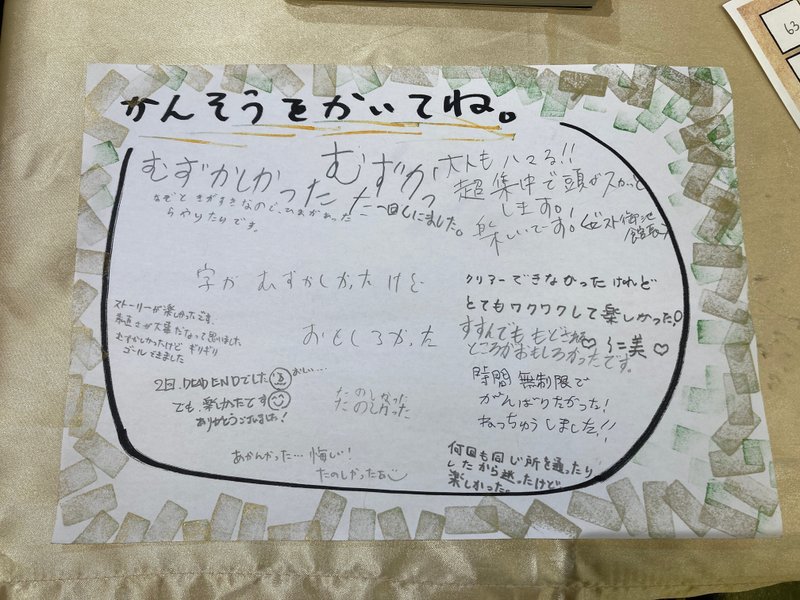 かんそうをかいてね。
むずかしかった
なぞときがすきなので、ひまがあった
らやりたりです。
むずかった
一回しにました。
大人もハマる!!
超集中で頭がスカッと
します。!
楽しいです。!
館長
字がむずかしかったけど
おもしろかった
ストーリーが楽しかったです。
素直さが大事だなって思いました
むずかしかったけどギリギリ
ゴールできました
2回、DEAD ENDでした
おしい…
でも、楽しかったです
ありがとうございました!
たのしかった
たのしかった
あかんかった…悔しい!
たのしかったぁ
クリアーできなかったけれど
とてもワクワクして楽しかった!
すすんでももどる
ところがおもしろかったです。
♡ 仁美 ♡
時間無制限で
がんばりたかった!
ねっちゅうしました!!
何回も同じ所を通ったり
したから迷ったけど
楽しかった。
63